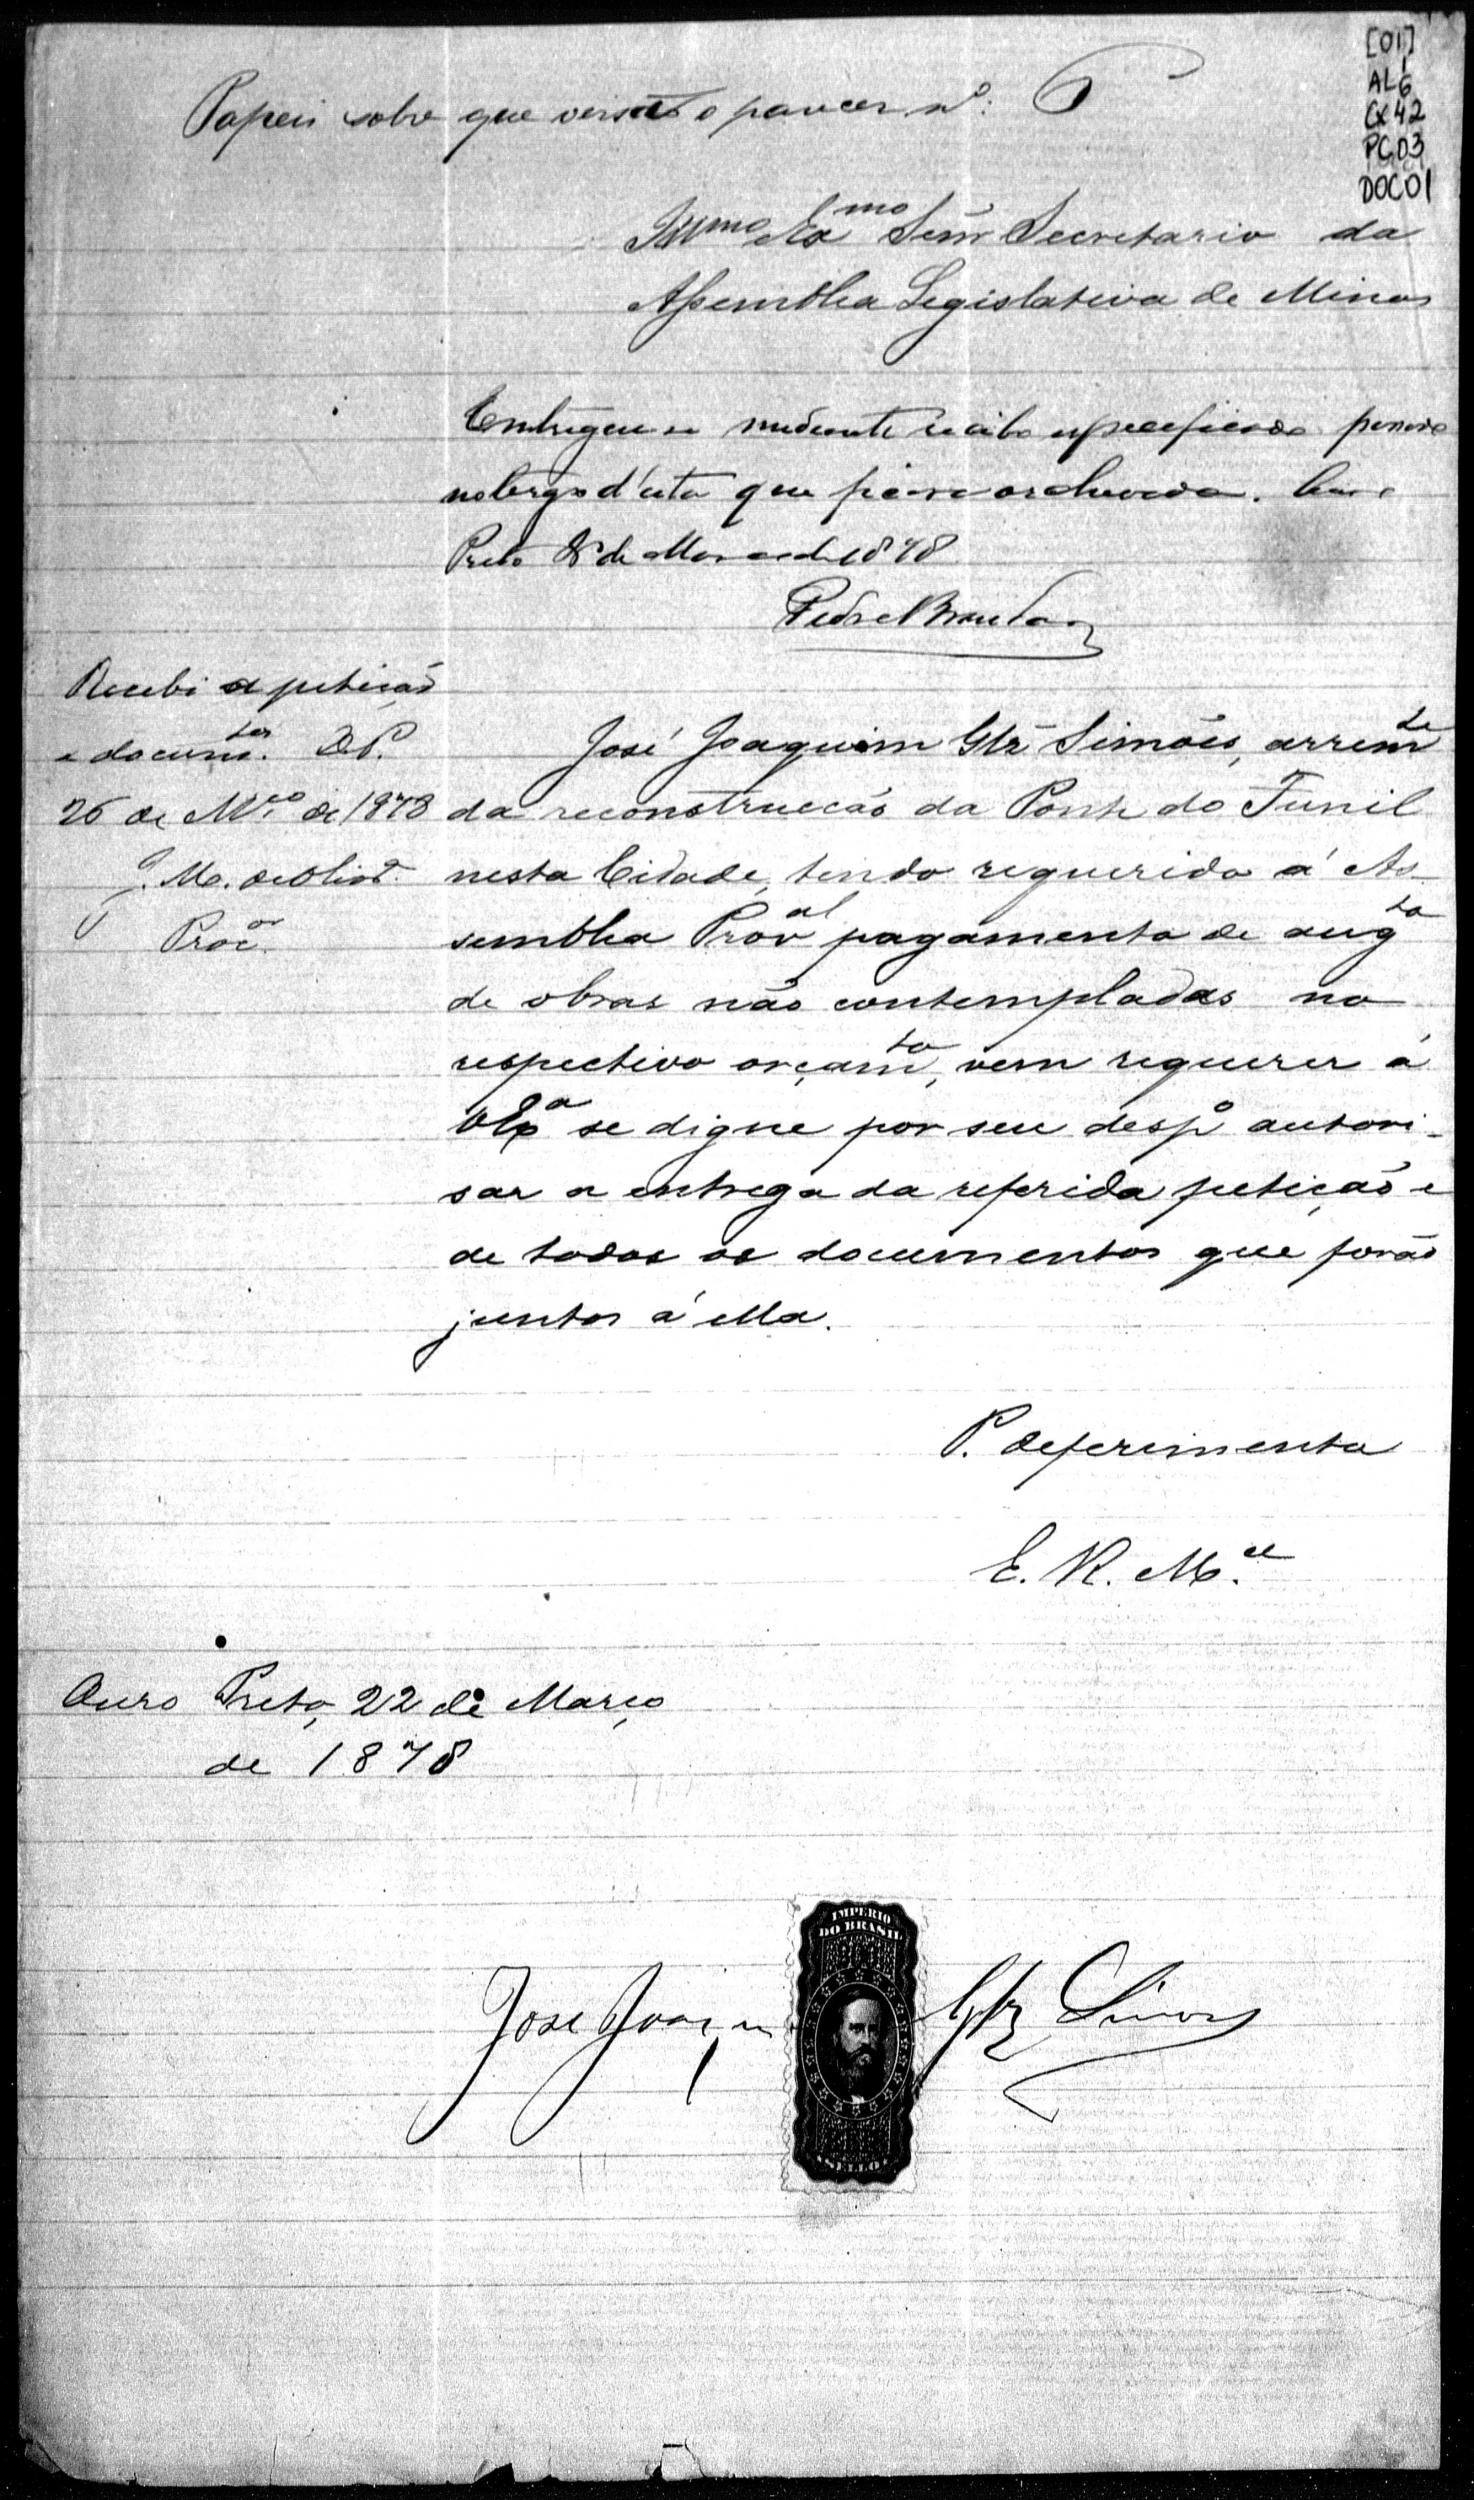 [01]
AL6
CX42
PC03
DOC01
Papeis sobre que versa o parecer nº: 6
Illmo Exmo Senr Secretario da
Assemblea Legislativa de Minas
Entregue-se mediante recibo especificado passado
no largo d'esta que fica archivada. Ouro
Preto de Março de 1878
Pedro Brandão
Recebi a petição
e documtos. O. P.
26 de Mço de 1878
J. M. de Olivª.
Procor
José Joaquim Glz Simões, arremte
da reconstrucção da Ponte do Funil
nesta Cidade, tendo requerido á As-
semblea Proval pagamento de augto
de obras não contempladas no
respectivo orçamto, vem requerer á
VExª se digne por seu despº autori-
sar a entrega da referida petição e
de todos os documentos que forão
juntos á ella.
P. deferimento
E. R. Mce
Ouro Preto, 22 de Março
de 1878
IMPERIO
DO BRASIL
SELLO
José Joaqm Glz Simões